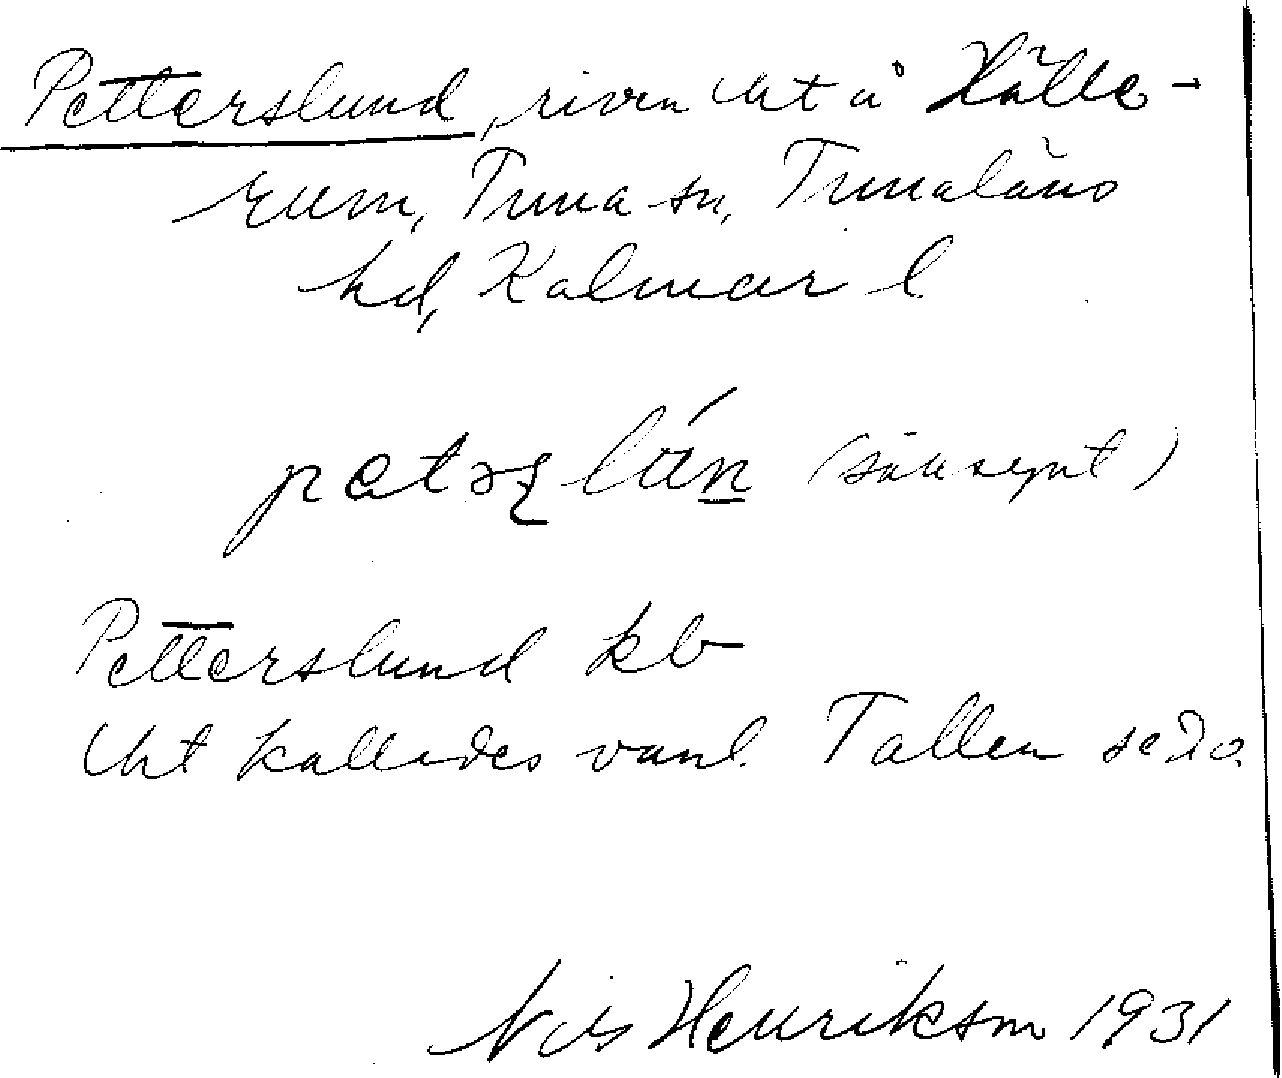 Petterslund, riven lht å Hälle-
rum, Tuna sn, Tunaläns
hd, Kalmar l
petəʂ lún (sällsynt)
Petterslund kb
lht kallades vanl. Tallen se d.o.
Nils Henrikson 1931